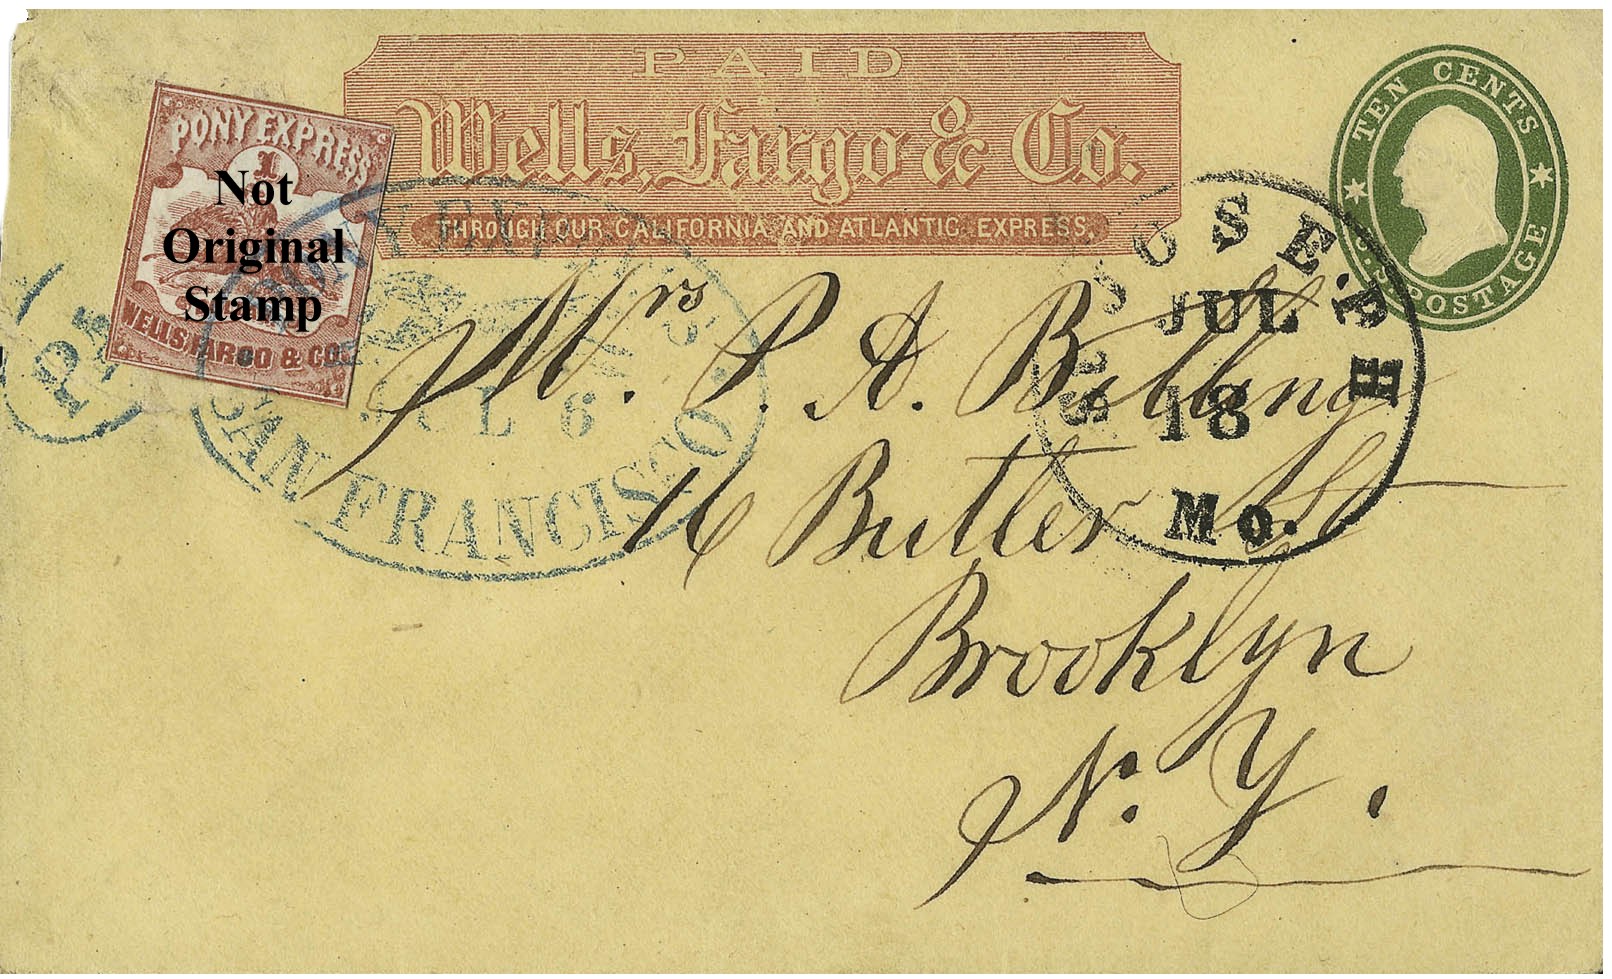 PAID
Wells, Fargo & Co.
THROUGH OUR CALIFORNIA AND ATLANTIC EXPRESS.
TEN CENTS
U.S. POSTAGE
PONY EXPRESS
1
Not
Original
Stamp
WELLS FARGO & CO.
PONY EXPRESS
JUL 6
SAN FRANCISCO
ST JOSEPH
JUL
18
Mo.
Mrs. P. A. Billing
16 Butler St
Brooklyn
N. Y.